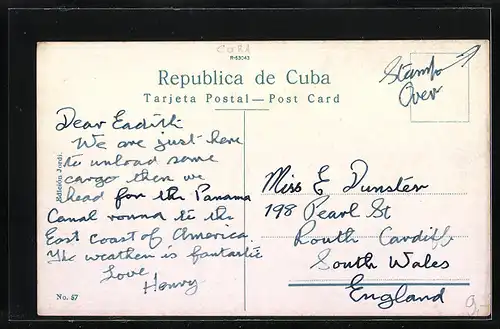 CUBA
R-53043
Republica de Cuba
Tarjeta Postal — Post Card
Stamp
Over
Dear Eadith
We are just here
to unload some
cargo then we
head for the Panama
Canal round to the
East coast of America.
The weather is fantastic
Love
Henry
Miss E Dunster
198 Pearl St
Routh Cardiff
South Wales
England
Edición Jordi.
No. 57
9,-